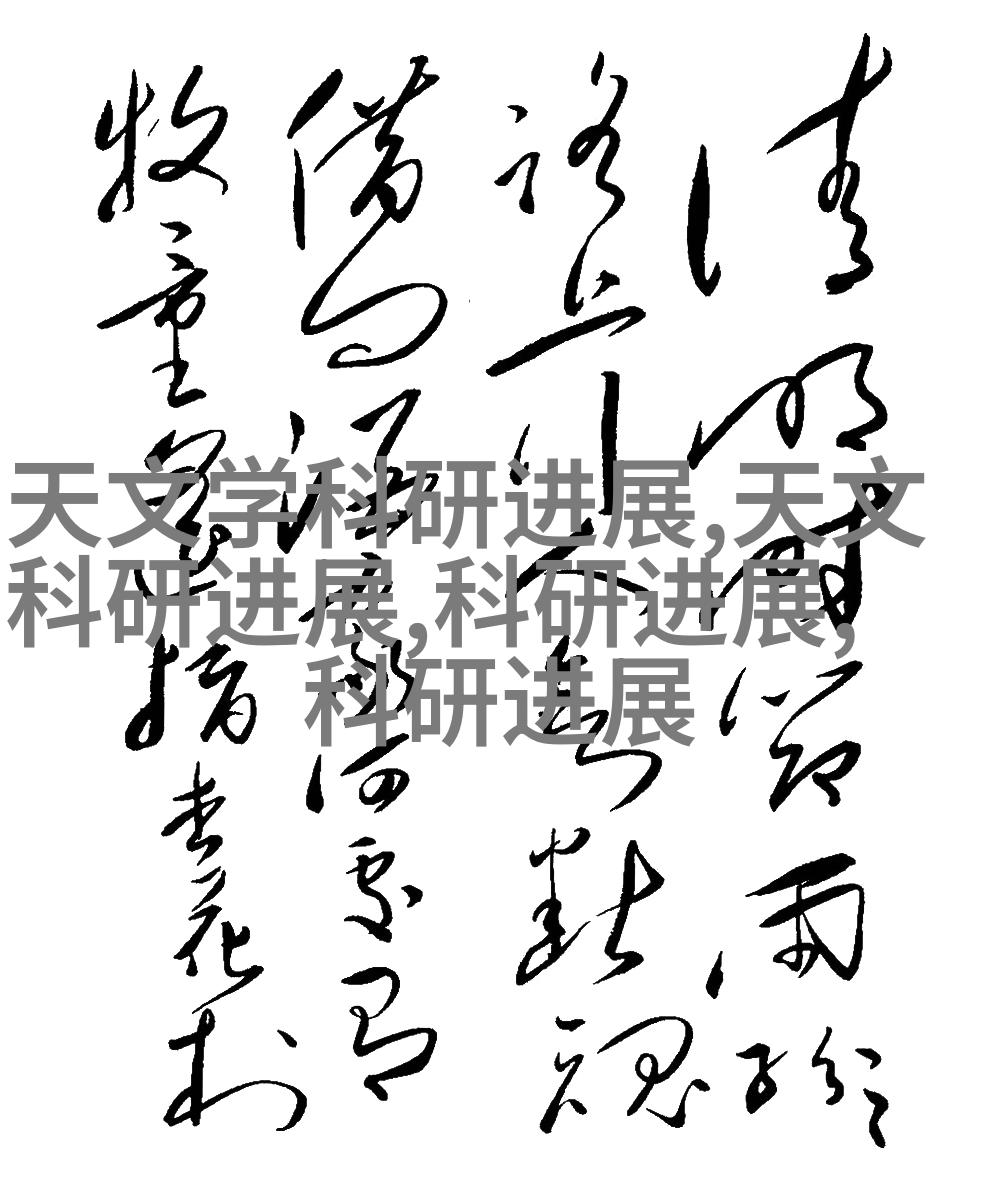 清明時節雨紛紛
路上行人欲斷魂
借問酒家何處有
牧童遥指杏花村
天文学科研进展,天文
科研进展,科研进展,
科研进展